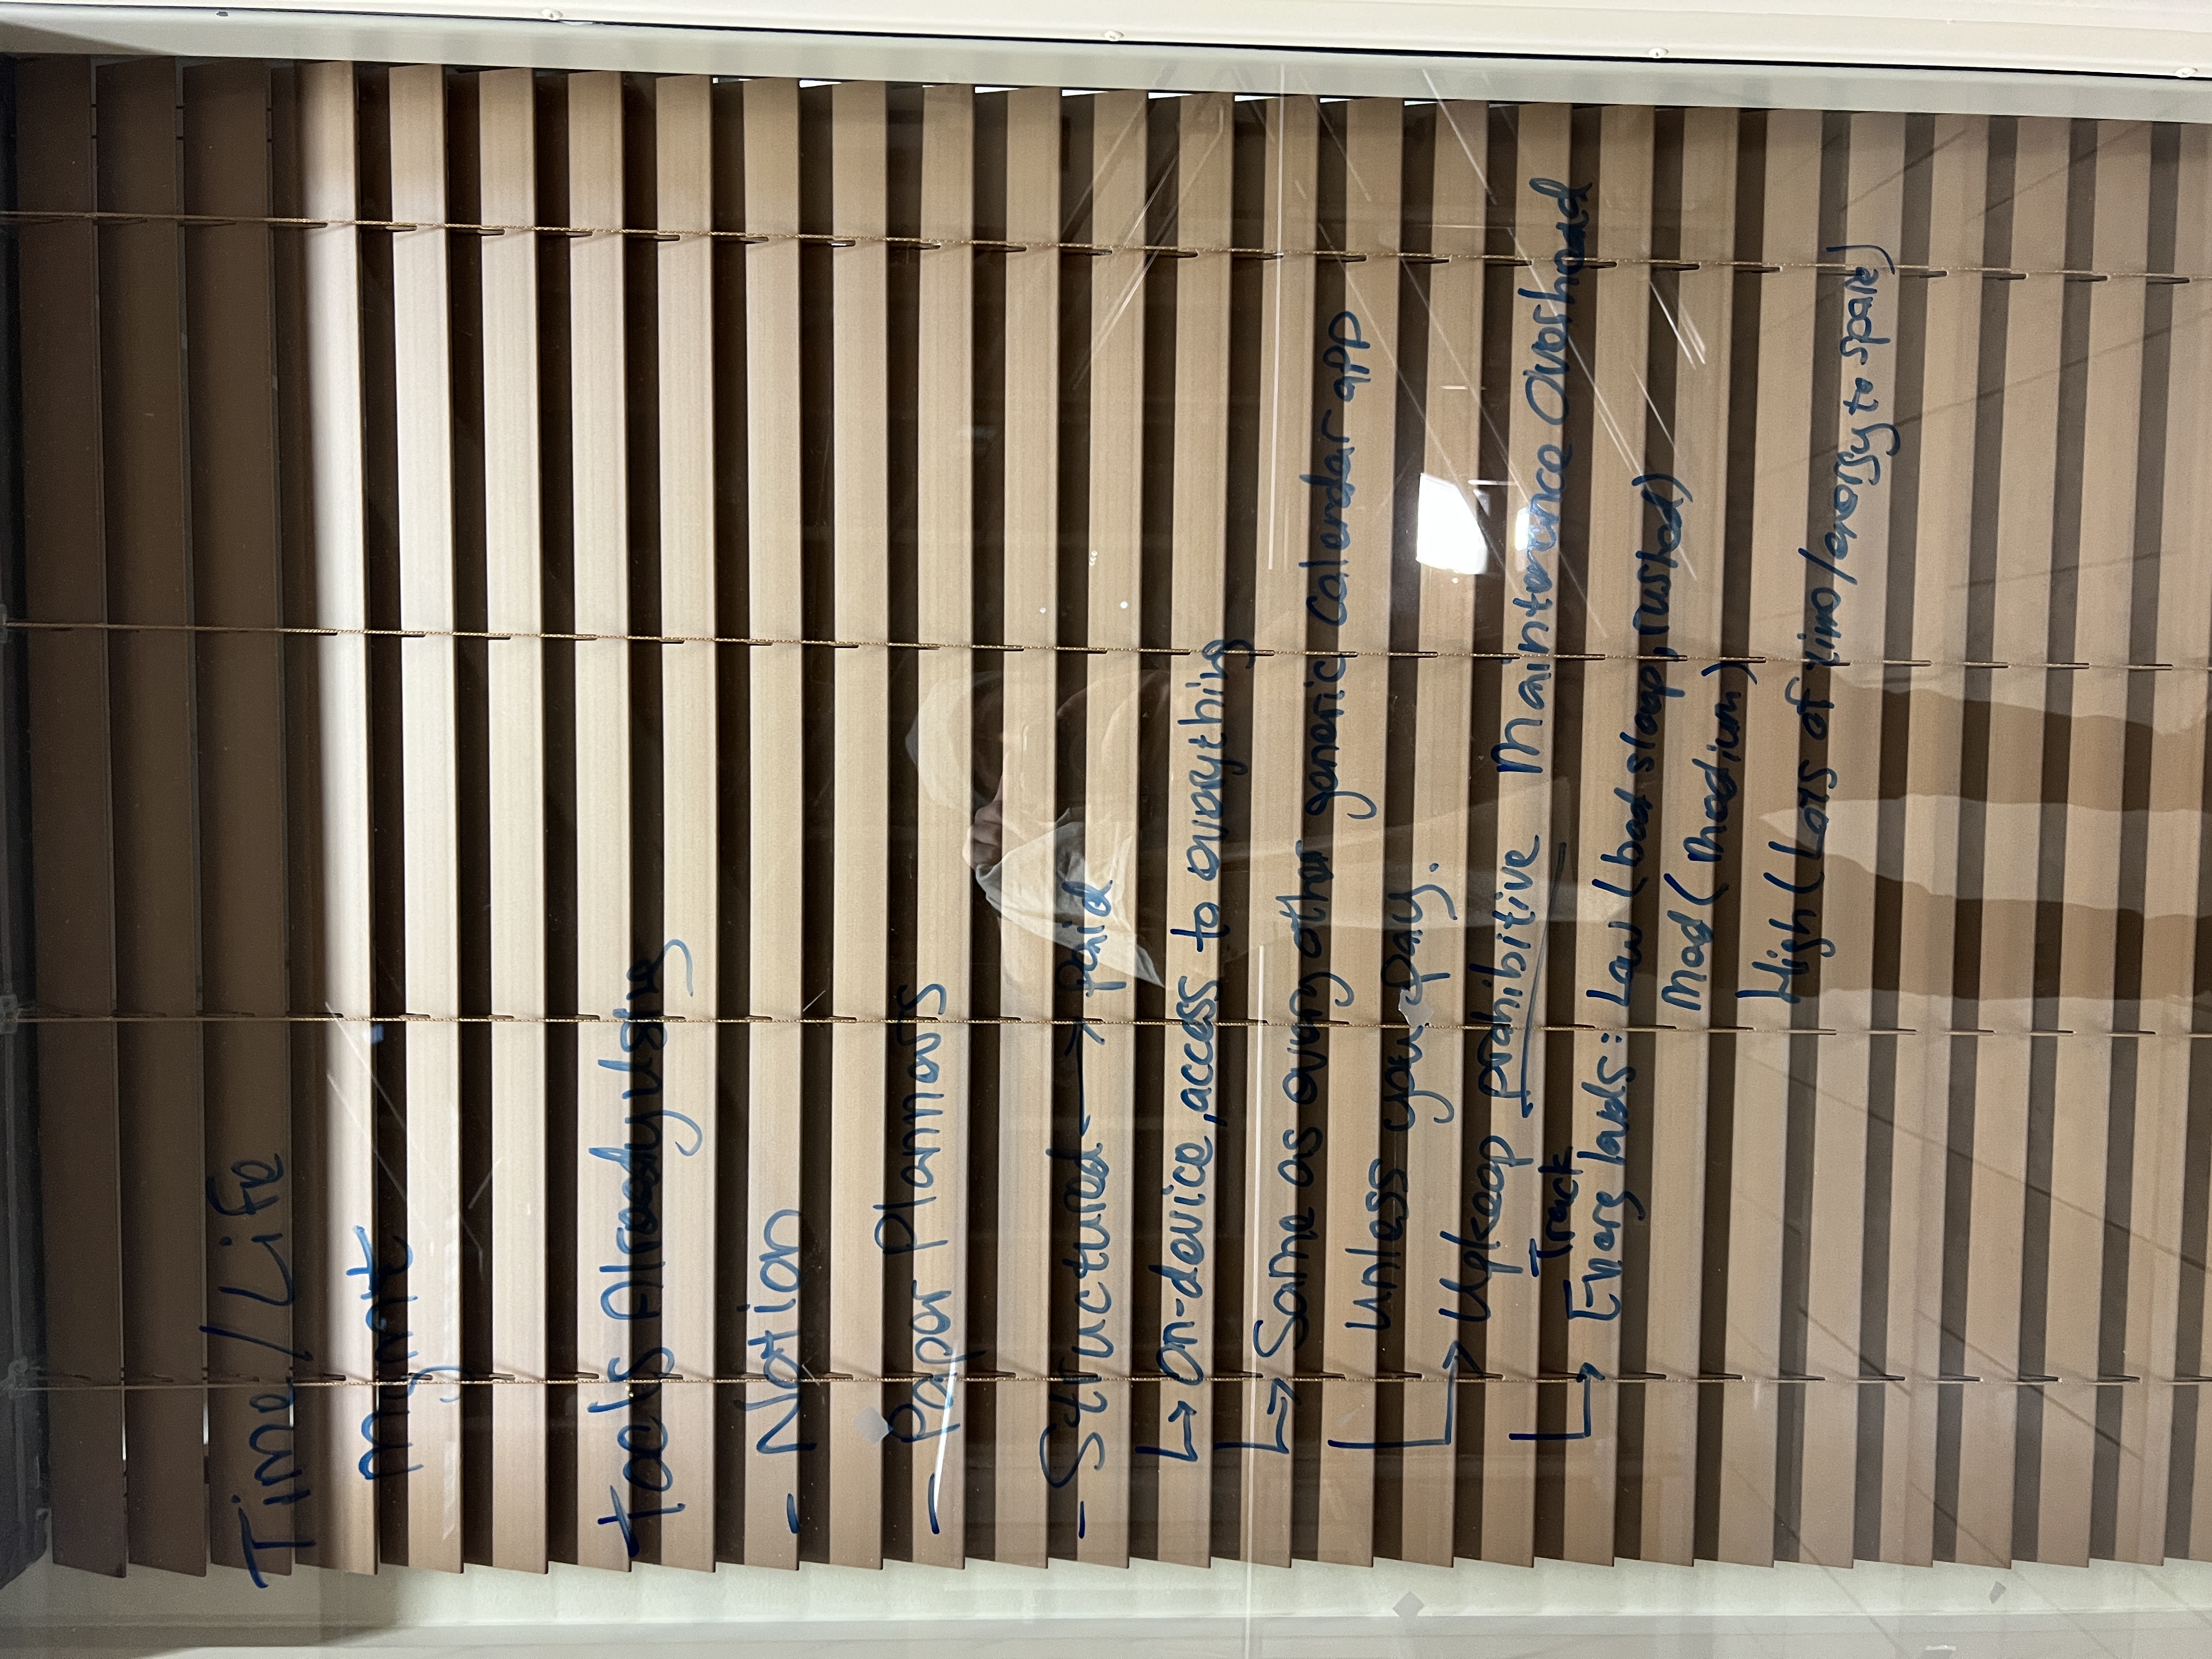 Time/Life
mgmt
Tools Already using
- Notion
- Paper Planners
- Structured → Paid
↳ on-device, access to everything
↳ Same as every other generic calendar app
unless you pay.
→ Upkeep prohibitive Maintenance Overhead
Track
→ Energy levels: Low (bad sleep, rushed)
Med (medium)
High (Lots of time/energy to spare)